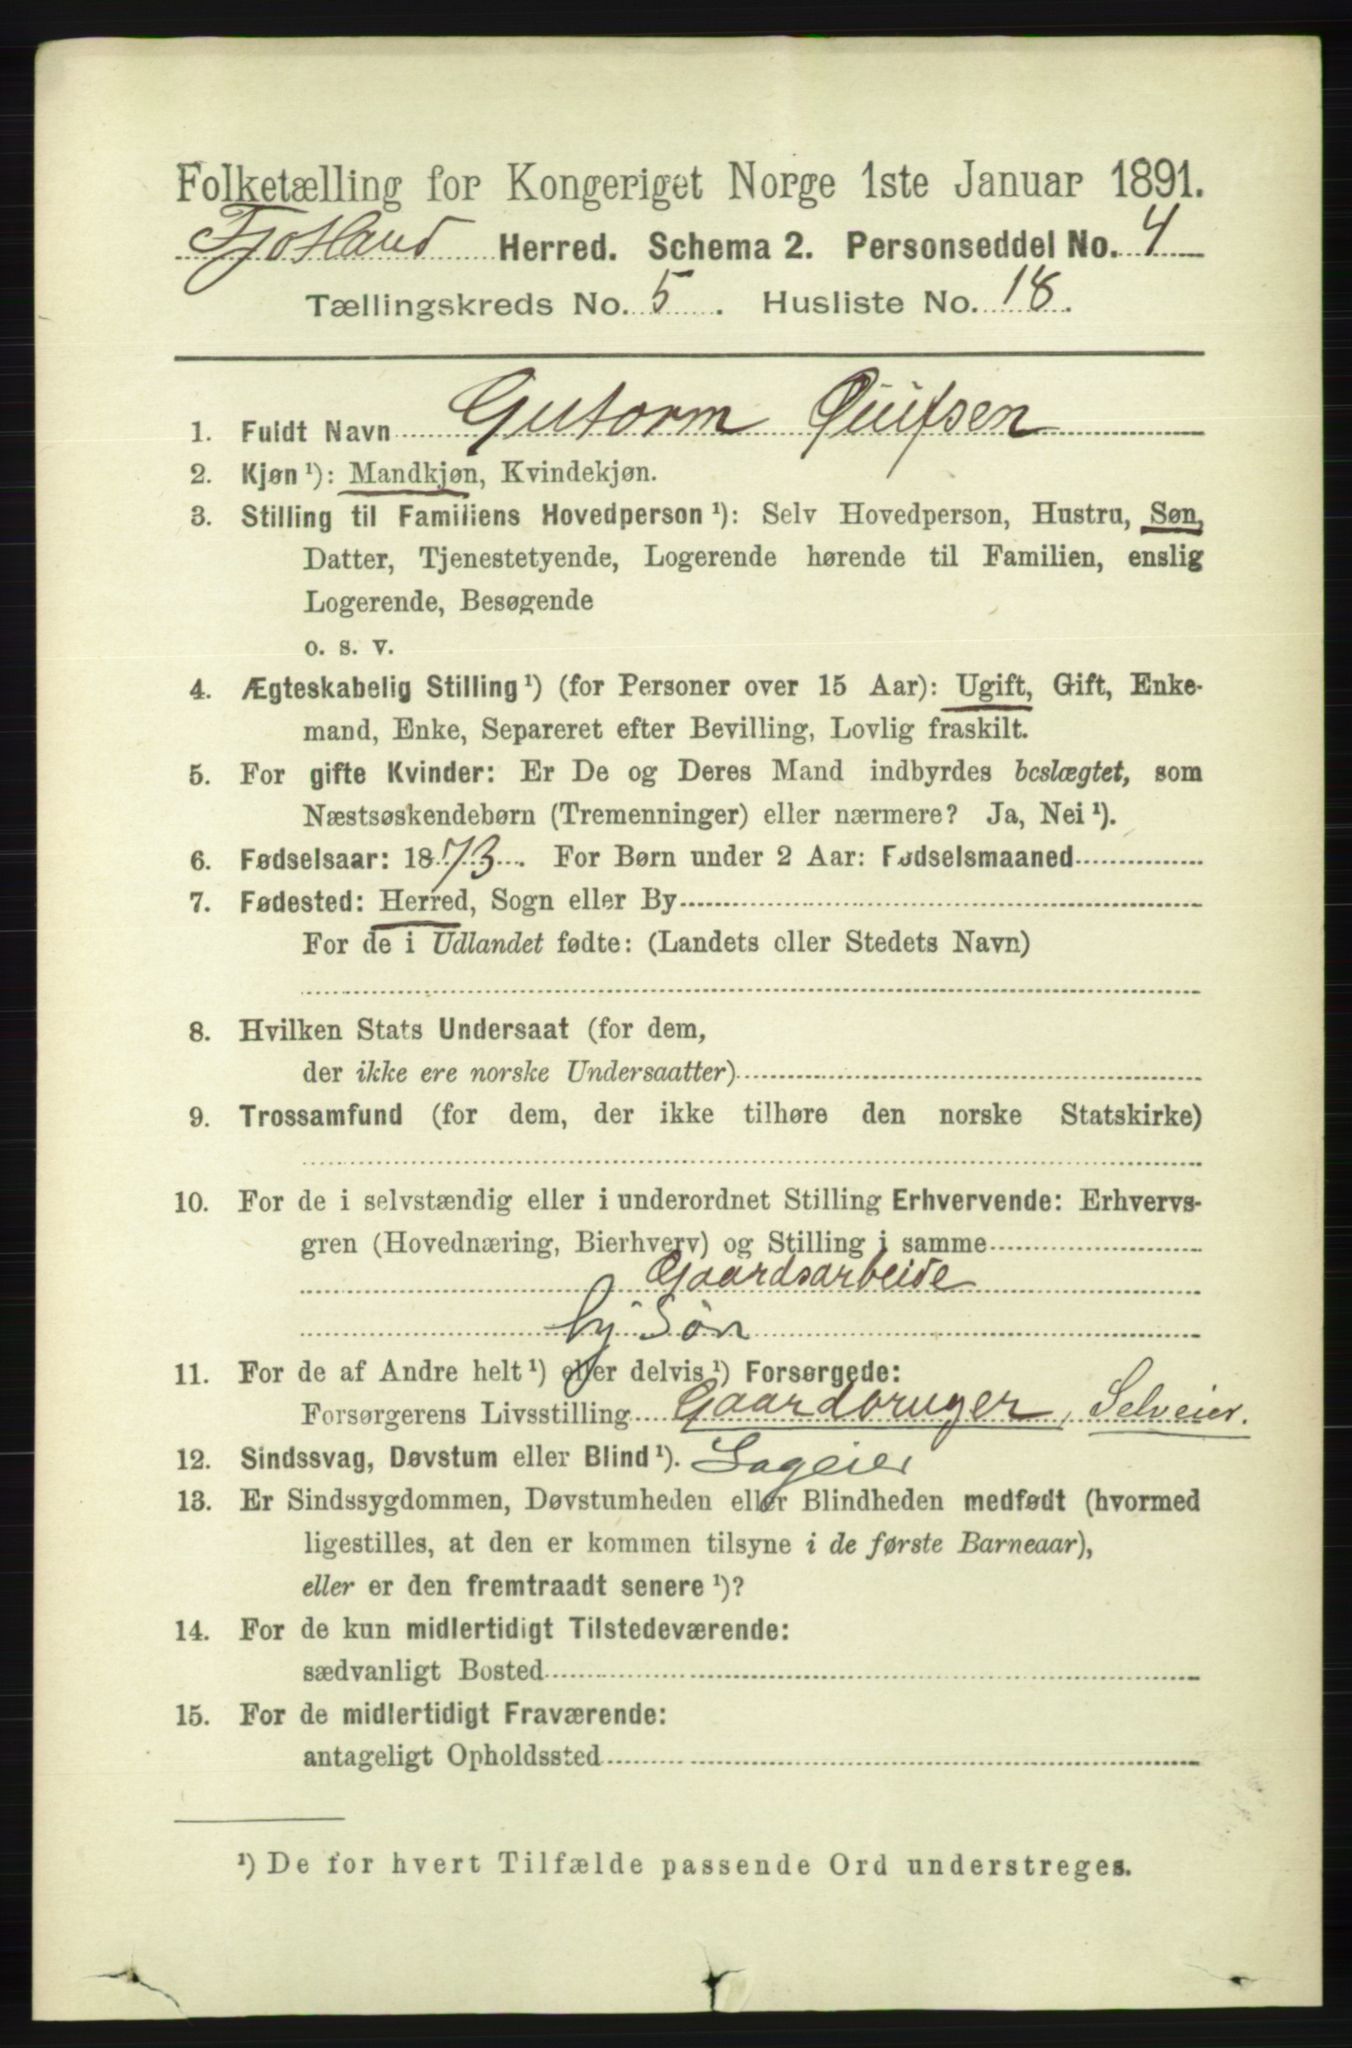 Folketælling for Kongeriget Norge 1ste Januar 1891.
Fjotland Herred. Schema 2. Personseddel No. 4
Tællingskreds No. 5. Husliste No. 18.
1. Fuldt Navn Gutorm
2. Kjøn ¹): Mandkjøn, Kvindekjøn.
3. Stilling til Familiens Hovedperson ¹): Selv Hovedperson, Hustru, Søn,
Datter, Tjenestetyende, Logerende hørende til Familien, enslig
Logerende, Besøgende
o. s. v.
4. Ægteskabelig Stilling ¹) (for Personer over 15 Aar): Ugift, Gift, Enke-
mand, Enke, Separeret efter Bevilling, Lovlig fraskilt.
5. For gifte Kvinder: Er De og Deres Mand indbyrdes beslægtet, som
Næstsøskendebørn (Tremenninger) eller nærmere? Ja, Nei ¹).
6. Fødselsaar: 1873. For Børn under 2 Aar: Fødselsmaaned
7. Fødested: Herred, Sogn eller By
For de i Udlandet fødte: (Landets eller Stedets Navn)
8. Hvilken Stats Undersaat (for dem,
der ikke ere norske Undersaatter)
9. Trossamfund (for dem, der ikke tilhøre den norske Statskirke)
10. For de i selvstændig eller i underordnet Stilling Erhvervende: Erhvervs-
gren (Hovednæring, Bierhverv) og Stilling i samme
Gaardsarbeide
Søn
11. For de af Andre helt ¹) eller delvis ¹) Forsørgede:
Forsørgerens Livsstilling Gaardbruger, Selveier.
12. Sindssvag, Døvstum eller Blind ¹).
13. Er Sindssygdommen, Døvstumheden eller Blindheden medfødt (hvormed
ligestilles, at den er kommen tilsyne i de første Barneaar),
eller er den fremtraadt senere ¹)?
14. For de kun midlertidigt Tilstedeværende:
sædvanligt Bosted
15. For de midlertidigt Fraværende:
antageligt Opholdssted
¹) De for hvert Tilfælde passende Ord understreges.